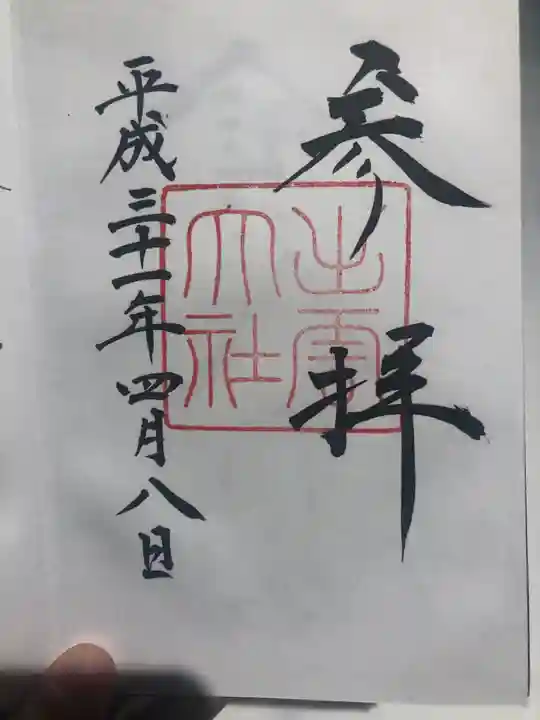 参拝
出雲大社
平成三十一年四月八日